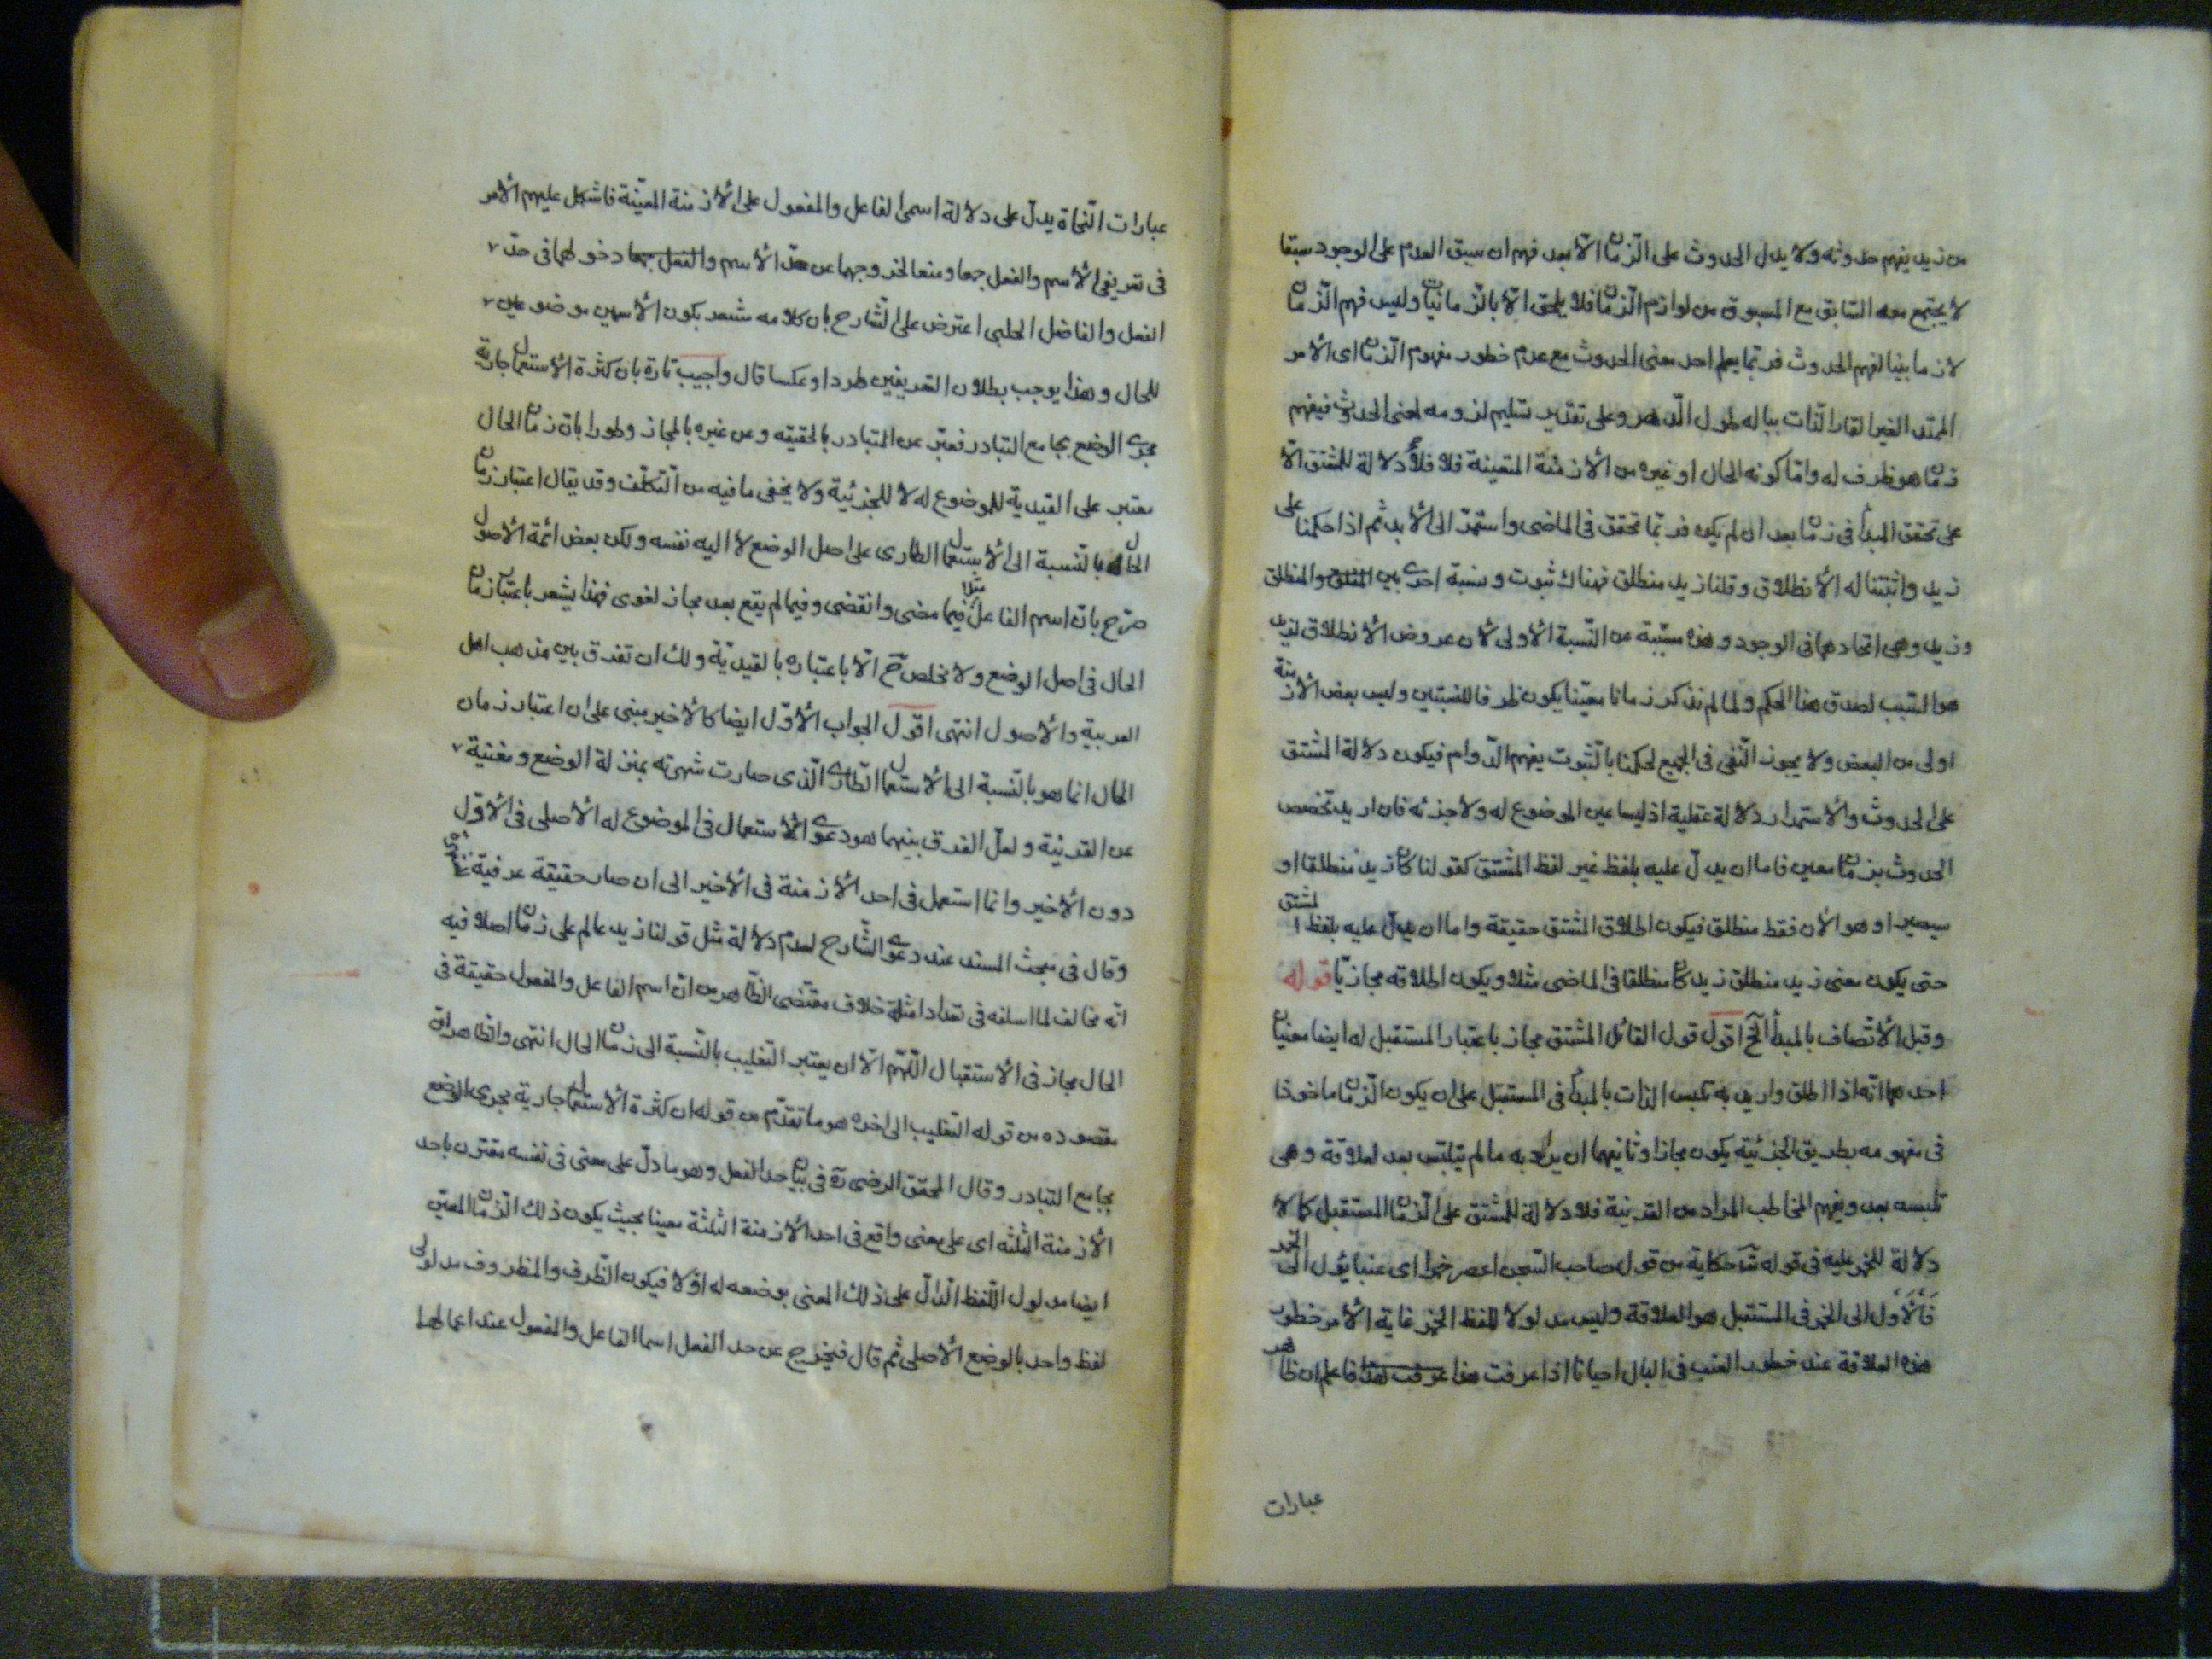 من زيد يفهم حدوثه ولا يدل الحدوث على الزمان الا بعد فهم ان سبق العدم على الوجود سبقا
لا يجتمع معه السابق مع المسبوق من لوازم الزمان فلا يلحق الا بالزمانيات وليس فهم الزمان
لازما بينا لفهم الحدوث فربما يعلم احد معنى الحدوث مع عدم خطور مفهوم الزمان اى الامر
الممتد الغير القار الذات بباله طول الدهر وعلى تقدير تسليم لزومه لمعنى الحدوث فيفهم
زمان ما هو ظرف له واما كونه الحال او غيره من الازمنة المتعينة فلا فلا دلالة للمشتق الا
على تحقق المبدأ فى زمان ما بعد ان لم يكن فربما تحقق فى الماضى واستمر الى الابد ثم اذا حكمنا على
زيد واثبتنا له الانطلاق وقلنا زيد منطلق فهناك ثبوت ونسبة اخرى بين المنطلق والمنطلق
وزيد وهى اتحادهما فى الوجود وهذه مسببة من النسبة الاولى لان عروض الانطلاق لزيد
هو السبب لصدق هذا الحكم ولما لم نذكر زمانا معينا يكون ظرفا للنسبتين وليس بعض الازمنة
اولى من البعض ولا يجوز النفى فى الجميع لحكمنا بالثبوت يفهم الدوام فيكون دلالة المشتق
على الحدوث والاستمرار دلالة عقلية اذ ليسا عين الموضوع له ولا جزئه فان اريد تخصص
الحدوث بزمان معين فاما ان يدل عليه بلفظ غير لفظ المشتق كقولنا كان زيد منطلقا او
سيصير او هو الان فقط منطلق فيكون اطلاق المشتق حقيقة واما ان يدل عليه بلفظ المشتق
حتى يكون معنى زيد منطلق زيد كان منطلقا فى الماضى مثلا ويكون اطلاقه مجازيا قوله
وقبل الاتصاف بالمبدأ الخ اقول قول القائل المشتق مجاز باعتبار المستقبل له ايضا معنيان
احدهما انه اذا اطلق واريد به تلبس الذات بالمبدأ فى المستقبل على ان يكون الزمان ماخوذا
فى مفهومه بطريق الجزئية يكون مجازا وثانيهما ان يراد به ما لم يتلبس بعد لعلاقة وهى
تلبسه بعد ويفهم المخاطب المراد من القرينة فلا دلالة للمشتق على الزمان المستقبل كما لا
دلالة للخمر عليه فى قوله تعـ حكاية من قول صاحب السجن اعصر خمرا اى عنبا يؤل الى الخمر
فالاول الى الخمر فى المستقبل هو العلاقة وليس مدلولا للفظ الخمر غاية الامر خطور
هذه العلاقة عند خطور العنب فى البال احيانا اذا عرفت هذا عرفت هذا فاعلم ان ظاهر
عبارات
عبارات النحاة يدل على دلالة اسمى الفاعل والمفعول على الازمنة المعينة فاشكل عليهم الامر
فى تعريفى الاسم والفعل جمعا ومنعا لخروجهما عن حد الاسم والفعل جمعا دخولهما فى حد
الفعل والفاضل الحلبى اعترض على الشارح بان كلامه مشعر بكون الاسمين موضوعين
للحال وهذا يوجب بطلان التعريفين طردا وعكسا قال واجيب تارة بان كثرة الاستعمال جارية
مجرى الوضع بجامع التبادر فعبر عن المتبادر بالحقيقه وعن غيره بالمجاز وطورا بان زمان الحال
معتبر على القيدية للموضوع له لا للجزئية ولا يخفى ما فيه من التكلف وقد يقال اعتبار زمان
الحال بالنسبة الى الاستعمال الطارى على اصل الوضع لا اليه نفسه ولكن بعض ائمة الاصول
صرح بان اسم الفاعل مثلا فيما مضى وانقضى وفيما لم يقع بعد مجاز لغوى فهذا يشعر باعتبار زمان
الحال فى اصل الوضع ولا مخلص ح الا باعتباره بالقيدية ولك ان تفرق بين مذهب اهل
العربية والاصول انتهى اقول الجواب الاول ايضا كالاخير مبنى على ان اعتبار زمان
الحال انما هو بالنسبة الى الاستعمال الطارى الذى صارت شهرته بمنزلة الوضع ومغنية
عن القرينة ولعل الفرق بينهما هو دعوى الاستعمال فى الموضوع له الاصلى فى الاول
دون الاخير وانما استعمل فى احد الازمنة فى الاخير الى ان صار حقيقة عرفية
وقال فى مبحث المسند عند دعوى الشارح لعدم دلالة مثل قولنا زيد عالم على زمان اصلا فيه
انه مخالف لما اسلفه فى تعداد امثلة خلاف مقتضى الظاهر من ان اسم الفاعل والمفعول حقيقة فى
الحال مجاز فى الاستقبال اللهم الا ان يعتبر التغليب بالنسبة الى زمان الحال انتهى والظاهر ان
مقصوده من قوله التغليب الى اخره هو ما تقدم من قوله ان كثرة الاستعمال جارية مجرى الوضع
بجامع التبادر وقال المحقق الرضى ره فى بيان حد الفعل وهو ما دل على معنى فى نفسه مقترن باحد
الازمنة الثلثه اى على معنى واقع فى احد الازمنة الثلثة معينا بحيث يكون ذلك الزمان المعين
ايضا مدلول اللفظ الدال على ذلك المعنى بوضعه له اولا فيكون الظرف والمظروف مدلولى
لفظ واحد بالوضع الاصلى ثم قال فيخرج عن حد الفعل اسما الفاعل والمفعول عند اعمالهما